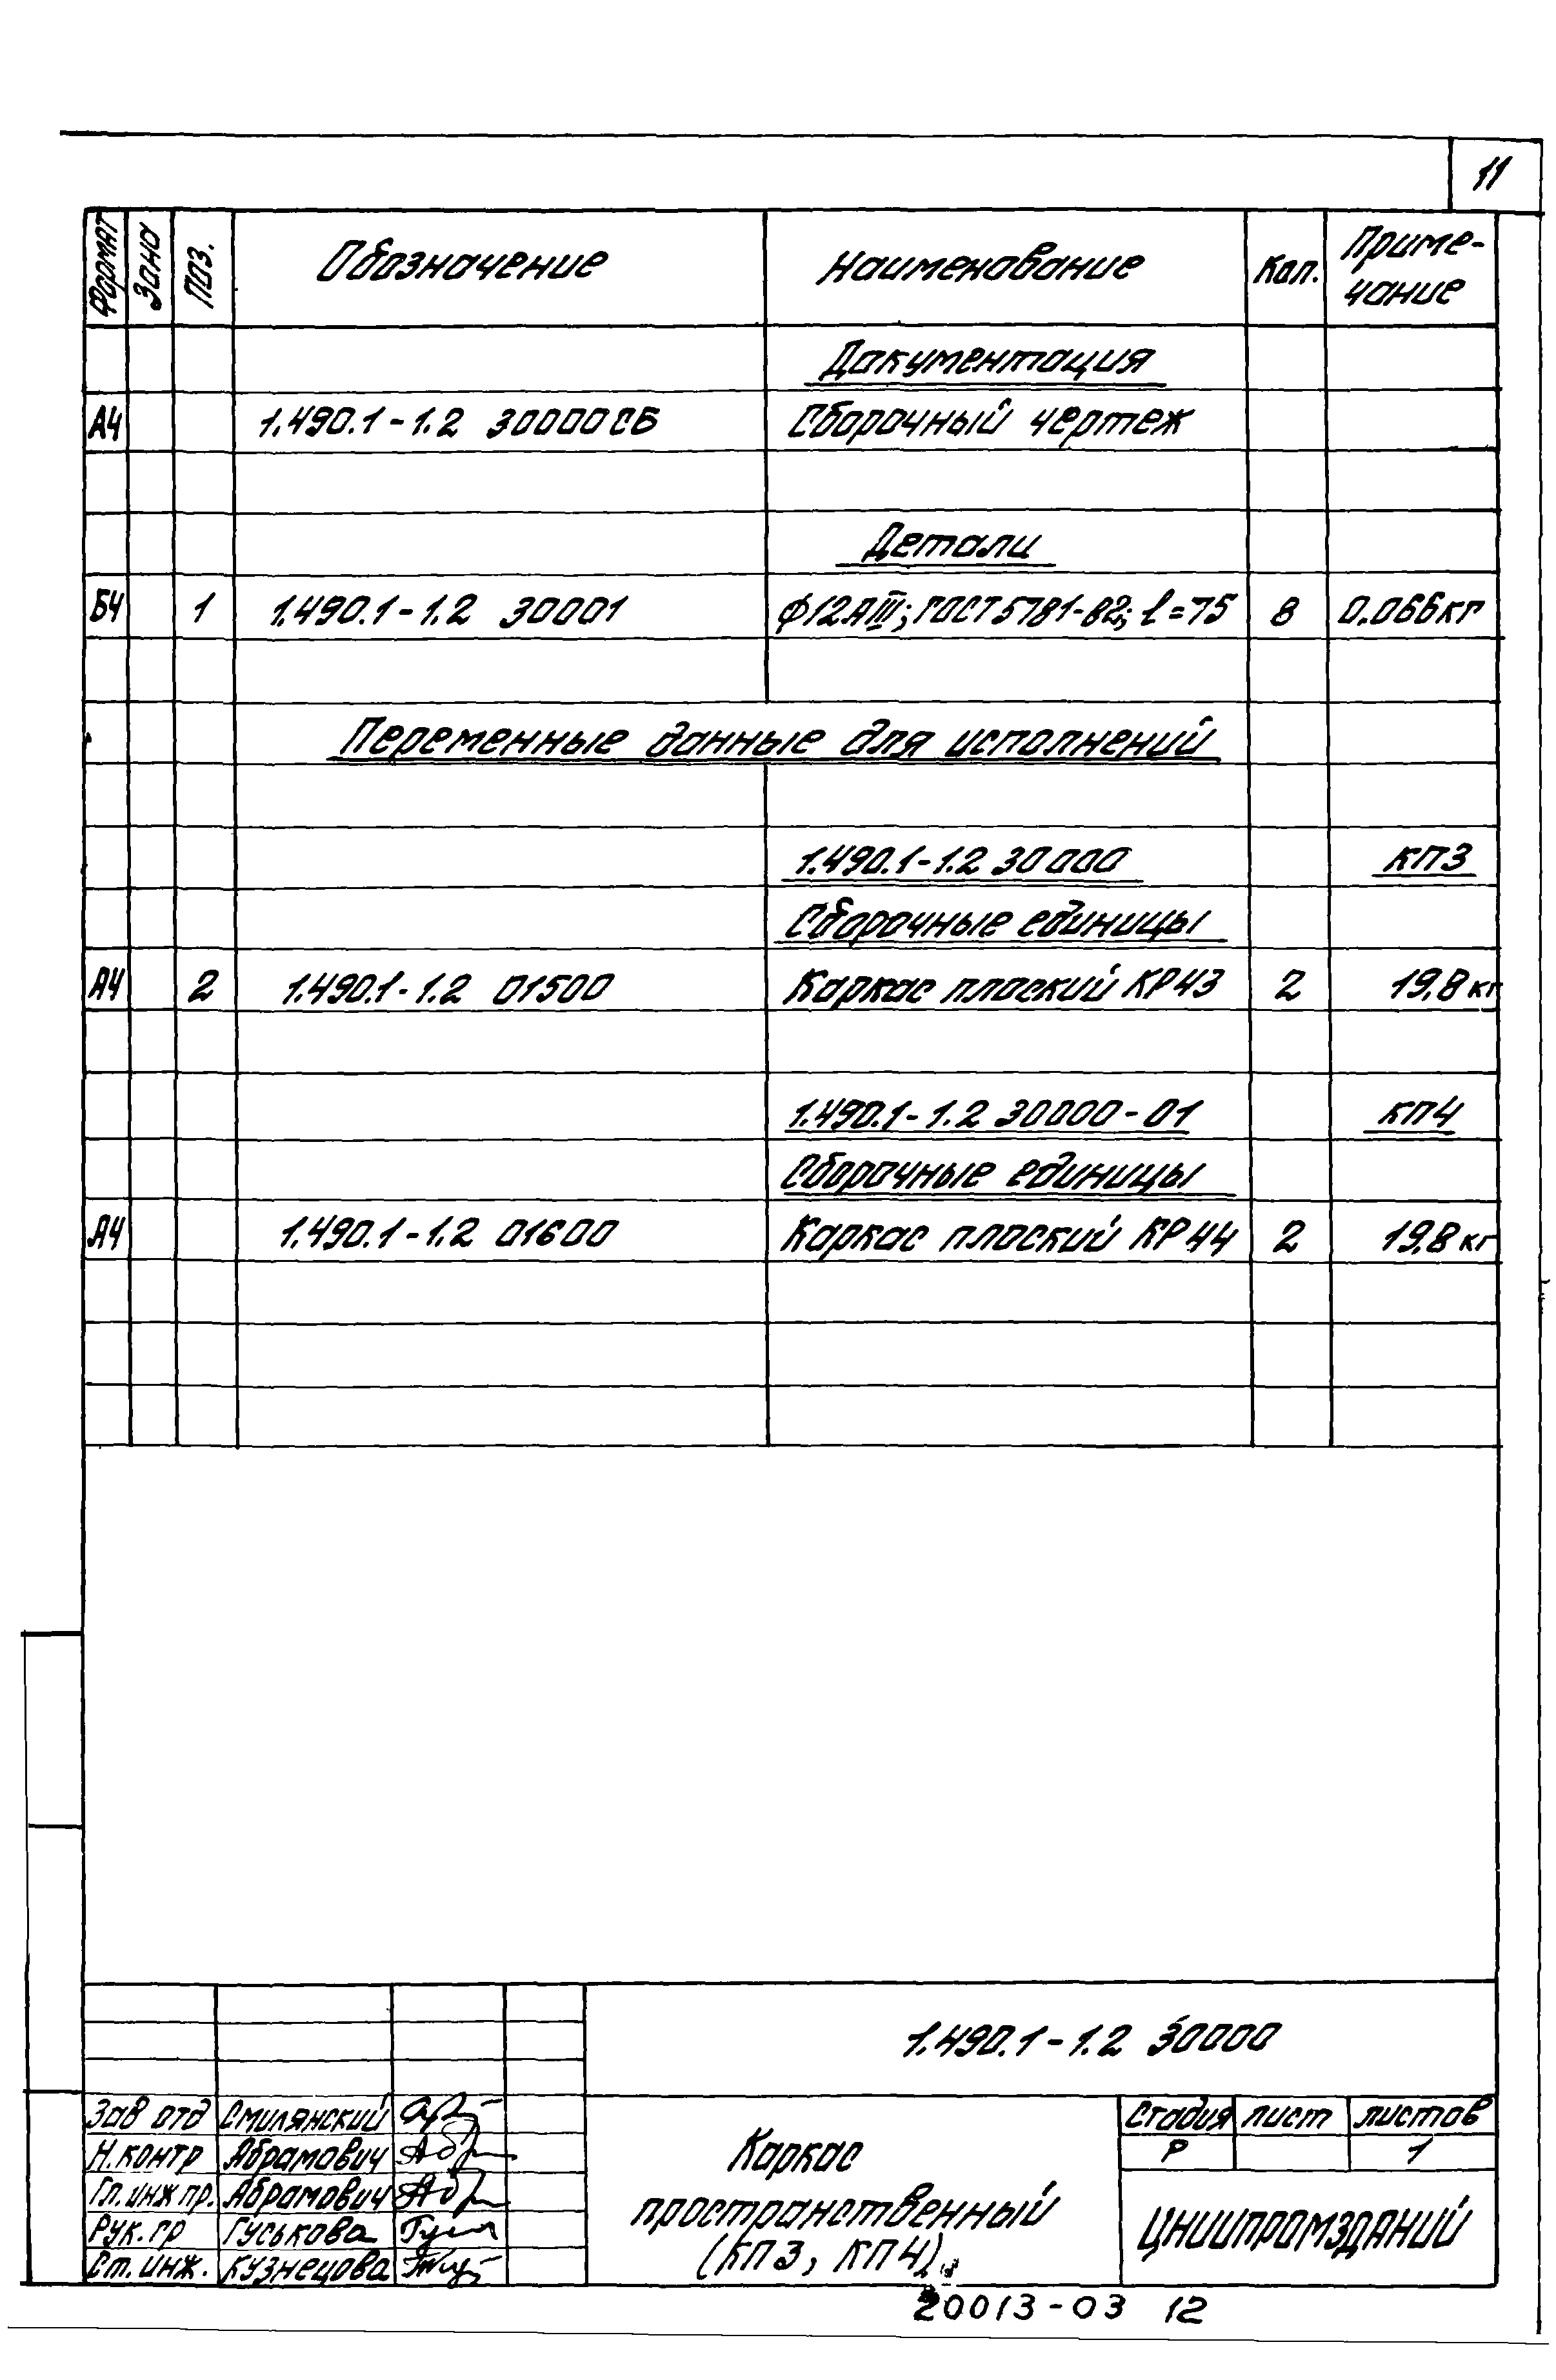 11
Формат Зона Поз. Обозначение Наименование Кол. Приме-
чание
Документация
А4 1.490.1-1.2 30000СБ Сборочный чертеж
Детали
БЧ 1 1.490.1-1.2 30001 Ф12АIII; ГОСТ 5781-82; ℓ=75 8 0.066кг
Переменные данные для исполнений
1.490.1-1.2 30000 КП3
Сборочные единицы
А4 2 1.490.1-1.2 01500 Каркас плоский КР43 2 19,8 кг
1.490.1-1.2 30000-01 КП4
Сборочные единицы
А4 1.490.1-1.2 01600 Каркас плоский КР44 2 19,8 кг
1.490.1-1.2 30000
Зав отд Смилянский
Н.контр Абрамович
Гл.инж пр. Абрамович
Рук.гр Гуськова
Ст.инж. Кузнецова
Каркас
пространственный
(КП3, КП4).
Стадия Лист Листов
Р 1
ЦНИИПРОМЗДАНИЙ
20013-03 12